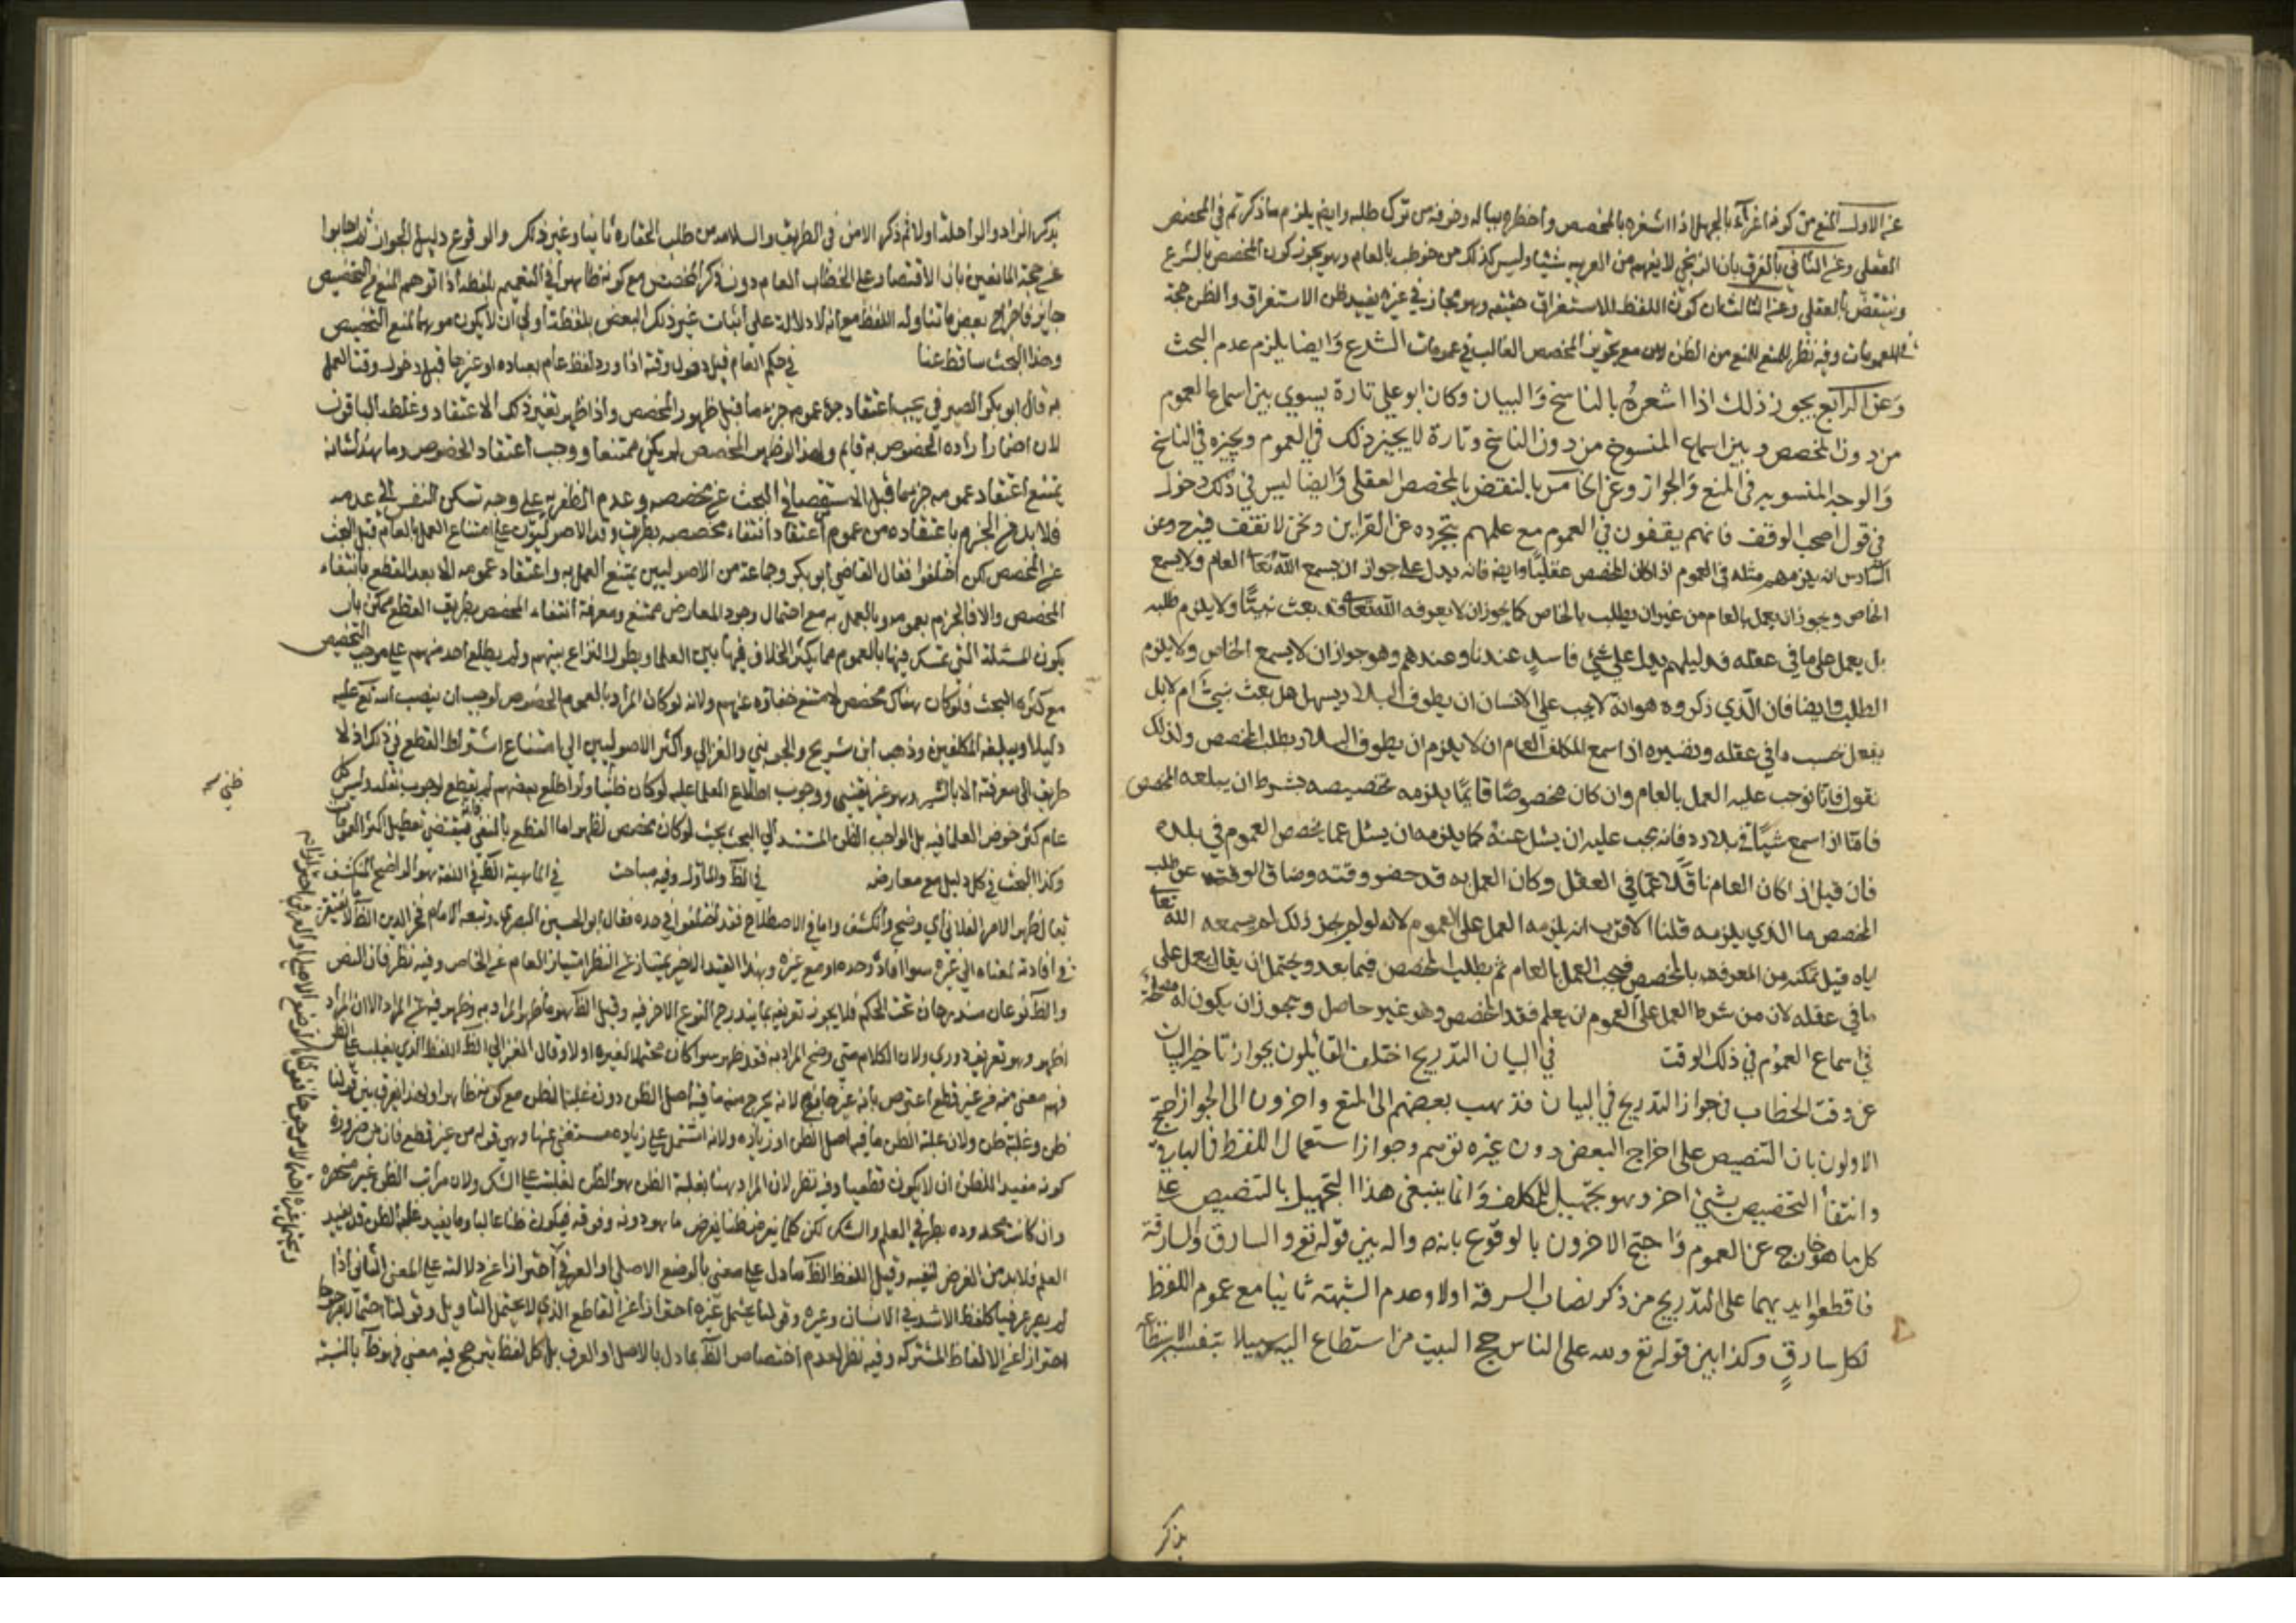 عن الاول المنع من كونه اغراء بالجهل اذا اشعره بالمخصص واخطره بباله وخوفه من ترك طلبه وايضا يلزم ما ذكرتم في المخصص
العقلي وعن الثاني بالفرق بان الزنجي لا يفهم من العربيه شيئا وليس كذلك من خوطب بالعام وهو يجوز كون المخصص بالشرع
وينتقض بالعقلي وعن الثالث ان كون اللفظ للاستغراق حقيقه وهو مجاز في غيره يفيد ظن الاستغراق والظن حجة
في العمومات وفيه نظر للمنع للمنع من الظن مع تجويز المخصص الغالب في عمومات الشرع وايضا يلزم عدم البحث
وعن الرابع يجوز ذلك اذا اشعره بالناسخ والبيان وكان ابو علي تارة يسوي بين اسماع العموم
من دون المخصص وبين اسماع المنسوخ من دون الناسخ وتارة لا يجيز ذلك في العموم ويجيزه في الناسخ
والوجه التسويه في المنع والجواز وعن الخامس بالنقض بالمخصص العقلي وايضا ليس في ذلك دخول
في قول اصحاب الوقف فانهم يقفون في العموم مع علمهم بتجرده عن القراين ونحن لا نقف فيه ح وعن
السادس انه يلزمهم مثله في العموم اذا كان المخصص عقليا وايضا فانه يدل على جواز ان يسمع الله تعالى العام ولا يسمع
الخاص ويجوز ان يعمل بالعام من غير ان يطلب بالخاص كما يجوز ان لا يعرفه الله تعالى قد بعث نبيا ولا يلزم طلبه
بل يعمل على ما في عقله فدليلهم يدل على شيء فاسد عندنا وعندهم وهو جواز ان لا يسمع الخاص ولا يلزم
الطلب وايضا فان الذي ذكروه هو انه لا يجب على الانسان ان يطوف البلاد يسئل هل بعث نبي ام لا بل
يفعل بحسب ما في عقله ونضيره اذا سمع المكلف العام ان لا يلزم ان يطوف البلاد يطلب المخصص ولذلك
نقول فانا نوجب عليه العمل بالعام وان كان مخصوصا قايما يلزمه تخصيصه بشرط ان يبلغه المخصص
فاما اذا سمع شيئا في بلاده فانه يجب عليه ان يسئل عنه كما يلزمه ان يسئل عما يخصص العموم في بلده
فان قيل اذا كان العام ناقلا عما في العقل وكان العمل به قد حضر وقته وضاق الوقت عن طلب
المخصص ما الذي يلزمه قلنا الاقرب انه يلزمه العمل على العموم لانه لو لم يجز ذلك لم يسمعه الله تعالى
اياه قبل تمكنه من المعرفه بالمخصص فيجب العمل بالعام ثم يطلب المخصص فيما بعد ويحتمل ان يقال يعمل على
ما في عقله لان من شرط العمل على العموم ان يعلم فقد المخصص وهو غير حاصل ويجوز ان يكون له مصلحة
في اسماع العموم في ذلك الوقت في البيان التدريج اختلف القائلون بجواز تاخير البيان
عن وقت الخطاب في جواز التدريج في البيان فذهب بعضهم الى المنع واخرون الى الجواز احتج
الاولون بان التنصيص على اخراج البعض دون غيره توهم وجواز استعمال اللفظ في الباقي
وانتفاء التخصيص بشيء اخر وهو تجهيل للمكلف وانما ينبغي هذا التجهيل بالتنصيص على
كل ما هو خارج عن العموم واحتج الاخرون بالوقوع بانه والد بين قوله تع والسارق والسارقة
فاقطعوا ايديهما على التدريج من ذكر نصاب السرقه اولا وعدم الشبهة ثانيا مع عموم اللفظ
لكل سارق وكذا بين قوله تع ولله على الناس حج البيت من استطاع اليه سبيلا بتفسير الاستطاعه
يذكر
يذكر الزاد والراحلة اولا ثم ذكر الامن في الطريق والسلامه من طلب الخفاره ثانيا وغير ذلك والوقوع دليل الجواز ثم اجابوا
عن حجة المانعين بان الاقتصار على الخطاب العام دون ذكر المخصص مع كونه ظاهرا في التعميم بلفظه اذا توهم المنع من التخصيص
جايز فاخراج بعض ما تناوله اللفظ مع انه لا دلالة على اثبات غير ذلك البعض بلفظه اولى ان لا يكون موهما لمنع التخصيص
وهذا البحث ساقط عنا في حكم العام قبل دخول وقته اذا ورد لفظ عام بعباده او غيرها قبل دخول وقت العمل
به قال ابو بكر الصيرفي يجب اعتقاد عمومه جزما قبل ظهور المخصص واذا ظهر تغير ذلك الاعتقاد وغلطه الباقون
لان احتمال اراده الخصوص به قايم ولهذا لو ظهر المخصص لم يكن ممتنعا ووجب اعتقاد الخصوص وما هذا شانه
يمتنع اعتقاد عمومه جزما قبل الاستقصاء في البحث عن مخصصه وعدم الظفر به على وجه تسكن النفس الى عدمه
فلا بد في الجزم باعتقاده من عموم اعتقاد انتفاء مخصصه بطريق وقد الاصوليون على امتناع العمل بالعام قبل البحث
عن المخصص لكن اختلفوا فقال القاضي ابو بكر وجماعة من الاصوليين يمتنع العمل به واعتقاد عمومه الا بعد القطع بانتفاء
المخصص والا فالجزم بعمومه وبالعمل به مع احتمال وجود المعارض ممتنع ومعرفة انتفاء المخصص بطريق القطع ممكن بان
يكون المسئلة التي تمسك فيها بالعموم مما يكثر الخلاف فيها بين العلما ويطول النزاع بينهم ولم يطلع احد منهم على موجب التخصيص
مع كثرة البحث فلو كان هناك مخصص لامتنع خفاؤه عنهم ولانه لو كان المراد بالعموم الخصوص لوجب ان ينصب الله تع عليه
دليلا ويبلغه المكلفين وذهب ابن شريح والجويني والغزالي واكثر الاصوليين الى امتناع اشتراط القطع في ذلك اذ لا
طريق الى معرفة الا بالسبر وهو غير يقيني ووجوب اطلاع العلما عليه لو كان ظنيا ولو اطلع بعضهم لم يقطع لوجوب نقله وليس كل
عام كثر خوض العلما فيه بل الواجب الظن المستند الى البحث بحيث لو كان مخصص لظهر اما القطع بالنفي فيقتضي تعطيل اكثر العمومات
وكذا البحث في كل دليل مع معارضه في الظاهر والماول وفيه مباحث في الماهية الظ في اللغة هو الواضح المنكشف
لظهر الامر الفلاني اي وضح وانكشف واما في الاصطلاح فقد اختلفوا في حده فقال ابو الحسين البصري وتبعه الامام فخر الدين الظ ما لا يفتقر
في افادته لمعناه الى غيره سواء افاده وحده او مع غيره وبهذا القيد الاخير يمتاز عن النظر امتياز العام عن الخاص وفيه نظر فان النص
والظ نوعان مندرجان تحت المحكم فلا يجوز تعريفه بما يندرج النوع الاخر فيه وقيل الظ هو ما ظهر المراد به وظهر فيه غير المراد الا ان المراد
اظهر وهو تعريف دوري ولان الكلام متى وضح المراد به فقد ظهر سواء كان محتملا لغيره او لا وقال الغزالي الظ اللفظ الذي يغلب على الظن
فهم معنى منه من غير قطع اعترض بانه غير جامع لانه يخرج منه ما فيه اصل الظن دون غلبة الظن مع كونه ظاهرا ولهذا يفرق بين قولنا
ظن وغلبة ظن ولان غلبة الظن ما فيه اصل الظن او زياده ولانه اشتمل على زياده مستغنى عنها وهي قوله من غير قطع فان من ضرورة
كونه مفيدا للظن ان لا يكون قطعيا وفيه نظر لان المراد هنا بغلبة الظن هو الظن لغلبته على الشك ولان مراتب الظن غير منحصره
وان كانت محدوده بطرفي العلم والشك لكن كلما يفرض ظنا يفرض ما هو دونه وفوقه فيكون ظنا غالبا وما يفيد غلبة الظن قد يفيد
العلم فلا بد من التعرض لنفيه وقيل اللفظ الظ ما دل على معنى بالوضع الاصلي او العرفي احترازا عن دلالته على المعنى الثاني اذا
لم يصر عرفيا كلفظ الاسد في الانسان وغيره وقولنا يحتمل غيره احترازا عن القاطع الذي لا يحتمل التاويل وقولنا احتمالا مرجوحا
احترازا عن الالفاظ المشتركه وفيه نظر لعدم اختصاص الظ بما دل بالاصل او العرف بل كل لفظ يترجح فيه معنى فهو ظ بالنسبة
ظني